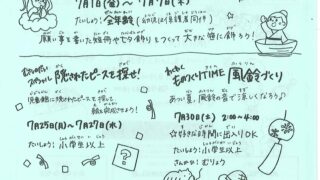 7月1日(金)～7月7日(木)
たいしょう:全年齢(幼児は保護者同伴)
願い事を書いた短冊や七夕飾りをつくって大きな笹に飾ろう!
スペシャル 隠されたピースを探せ!
ものづくりTIME 風鈴づくり
あつい夏、風鈴の音で涼しくなろう♪
児童館に隠されたピースを探して
絵を完成させよう!
7月25日(月)～7月27日(水)
たいしょう:小学生以上
7月30日(土) 2:00～4:00
☆好きな時間に出入りOK
たいしょう:小学生以上
さんかひ:むりょう